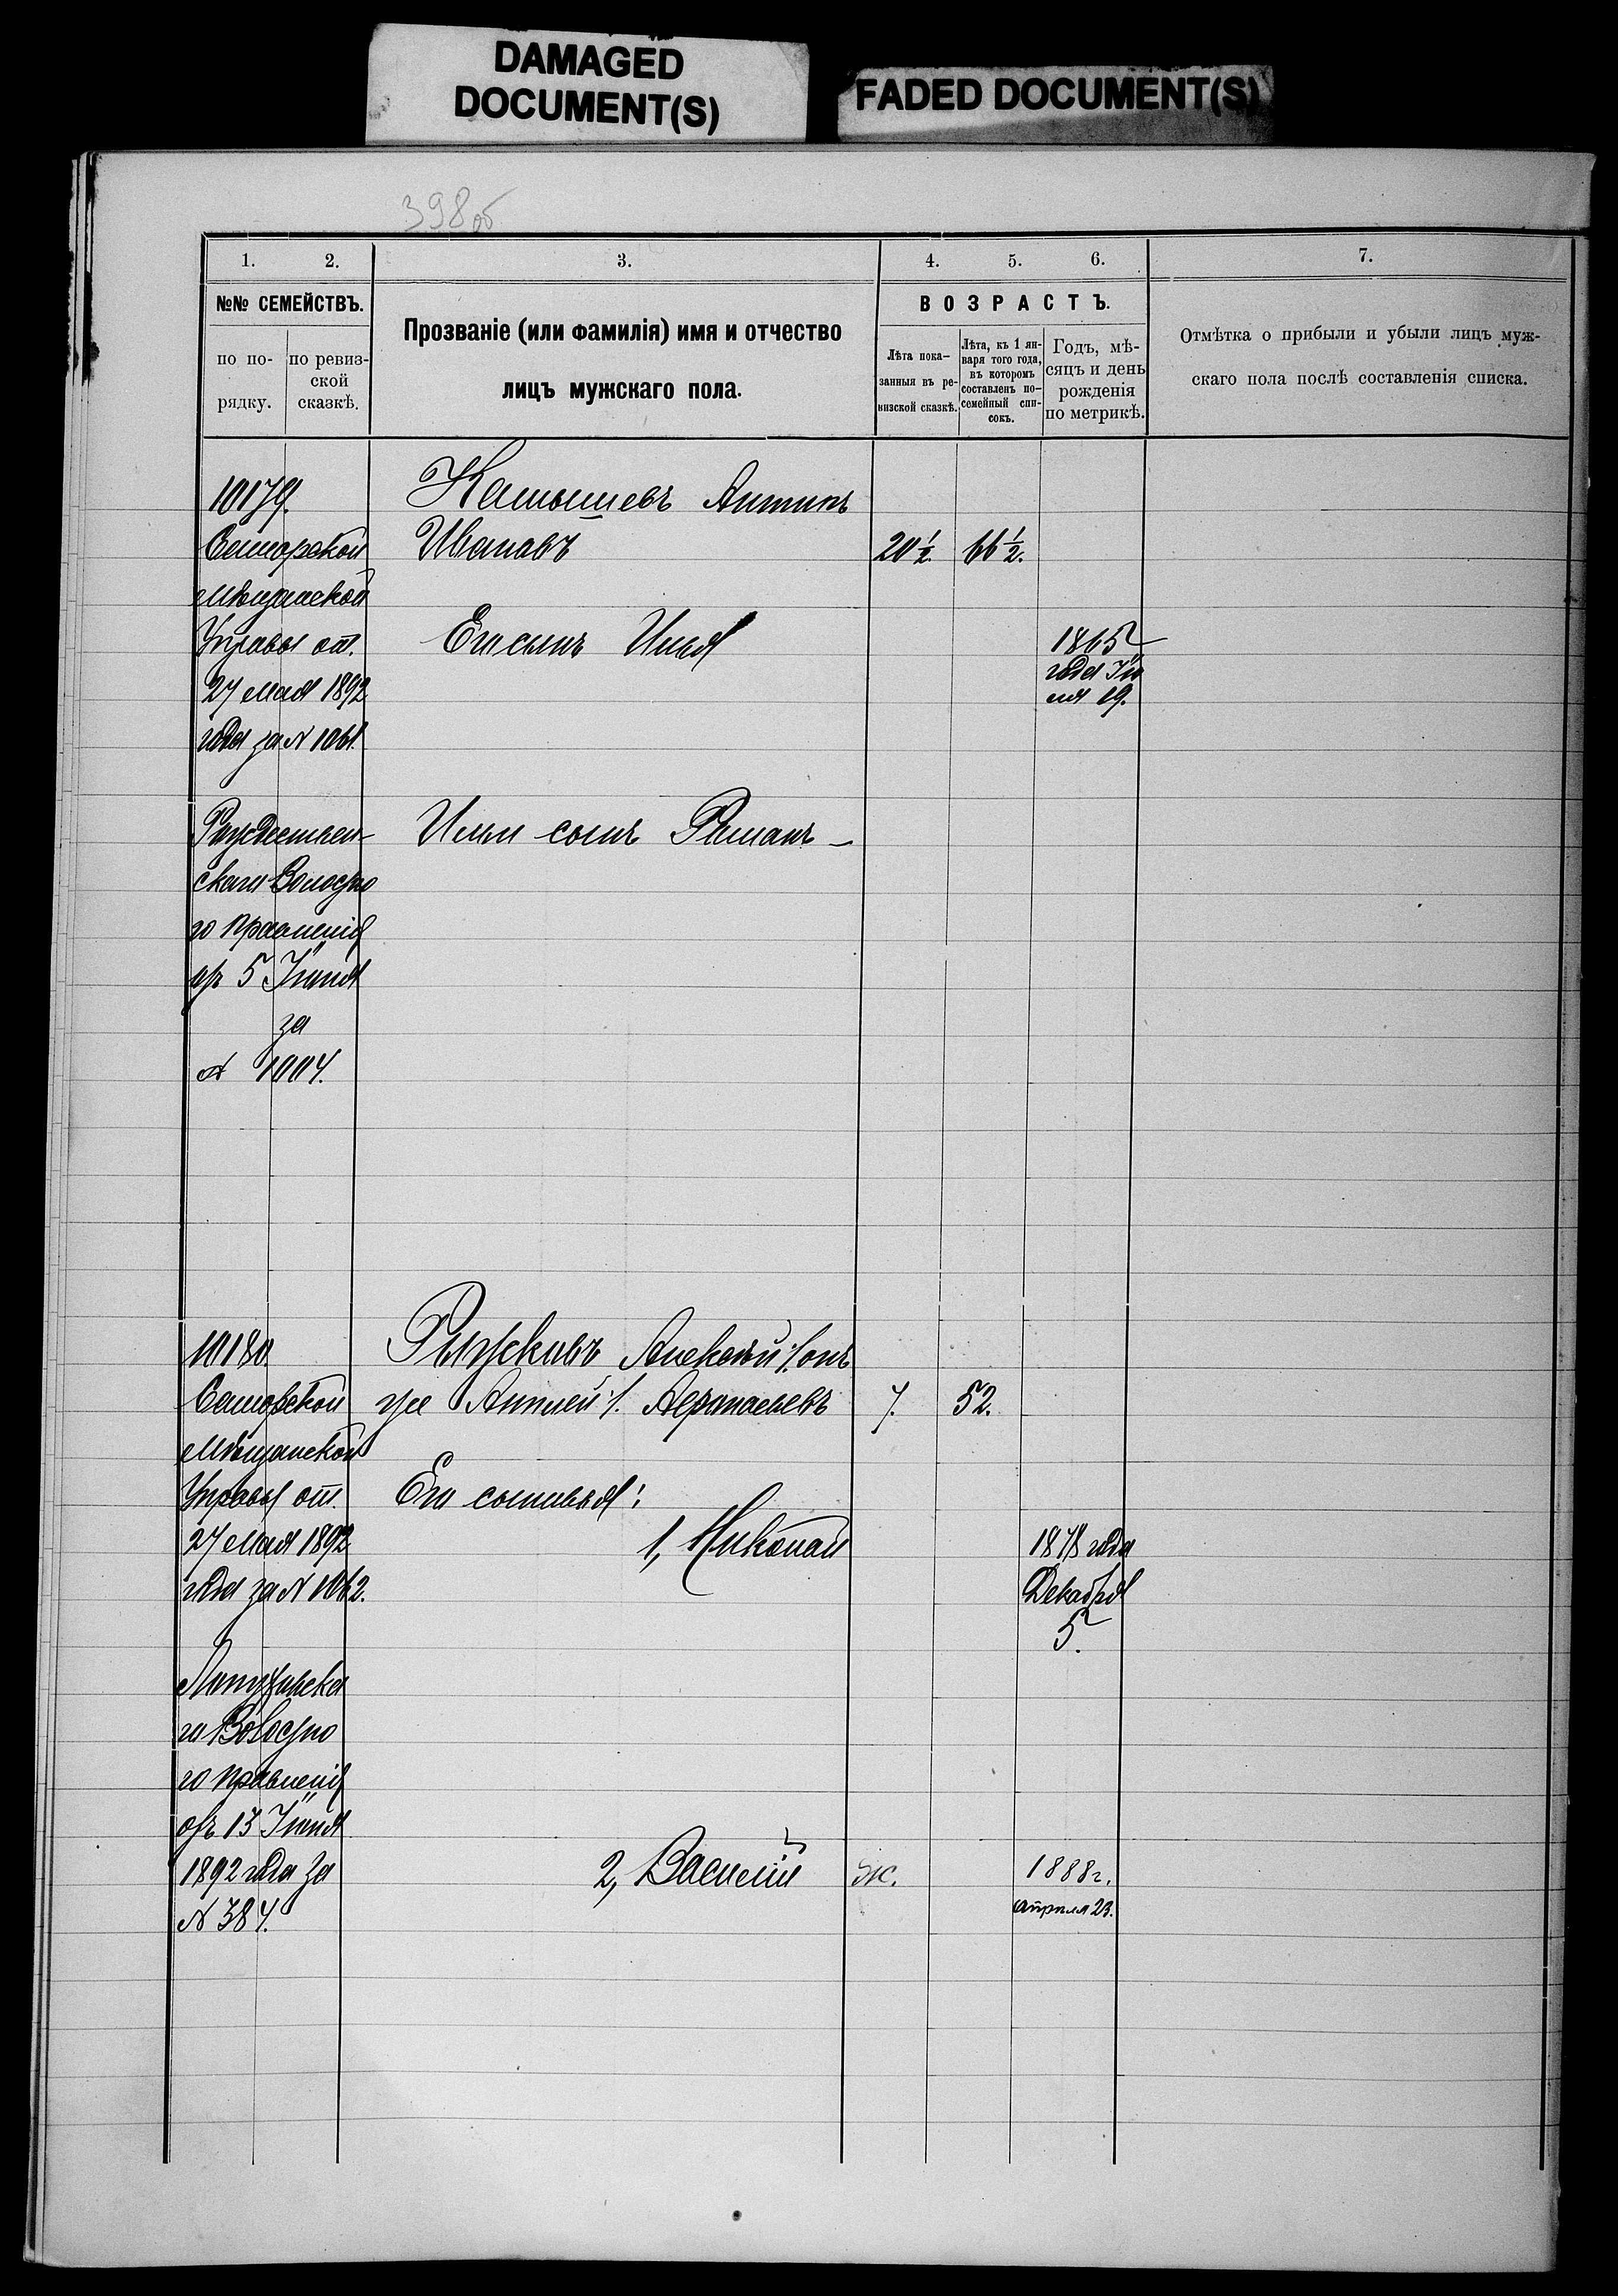 DAMAGED
DOCUMENT(S)
FADED DOCUMENT(S)
398об
1. 2. 3. 4. 5. 6. 7.
№№ СЕМЕЙСТВЪ.
по по-
рядку.
по ревиз-
ской
сказкѣ.
Прозваніе (или фамилія) имя и отчество
лицъ мужскаго пола.
ВОЗРАСТЪ.
Лѣта пока-
занныя въ ре-
визской сказкѣ.
Лѣта, къ 1 ян-
варя того года,
въ которомъ
составленъ по-
семейный спи-
сокъ.
Годъ, мѣ-
сяцъ и день
рожденія
по метрикѣ.
Отмѣтка о прибыли и убыли лицъ муж-
скаго пола послѣ составленія списка.
10179.
Самарской
Мѣщанской
Управы от.
27 мая 1892
года за N 1061.
Рождествен-
скаго Волостно
го Правленія
отъ 5 Іюня
за
N 1004.
Камышевъ Антипъ
Ивановъ 20½. 66½.
Его сынъ Илья
1865
года Ію
ля 19.
Ильи сынъ Романъ -
10180.
Самарской
Мѣщанской
Управы от.
27 мая 1892
года за N 1062.
го Волостно
го Правленія
отъ 13 Іюня
1892 года за
N 384.
Рыжковъ Алексѣй /: онъ
же :/. Афанасьевъ 7. 52.
Его сыновья:
1, Николай
1878 года
Декабря
5.
2, Василій ж.
1888 г.
Апрѣля 23.